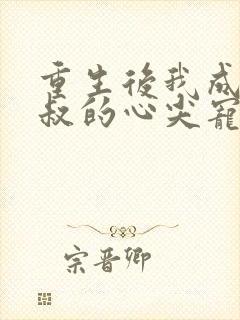 重生後我成
叔的心尖寵
宗晋卿